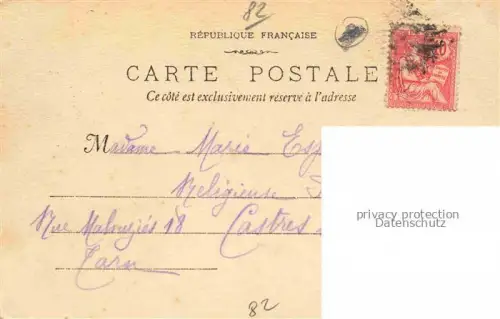 82
RÉPUBLIQUE FRANÇAISE
CARTE POSTALE
Ce côté est exclusivement réservé à l'adresse
Madame Marie
Religieuse
Rue 18 Castres
Tarn
privacy protection
Datenschutz
82